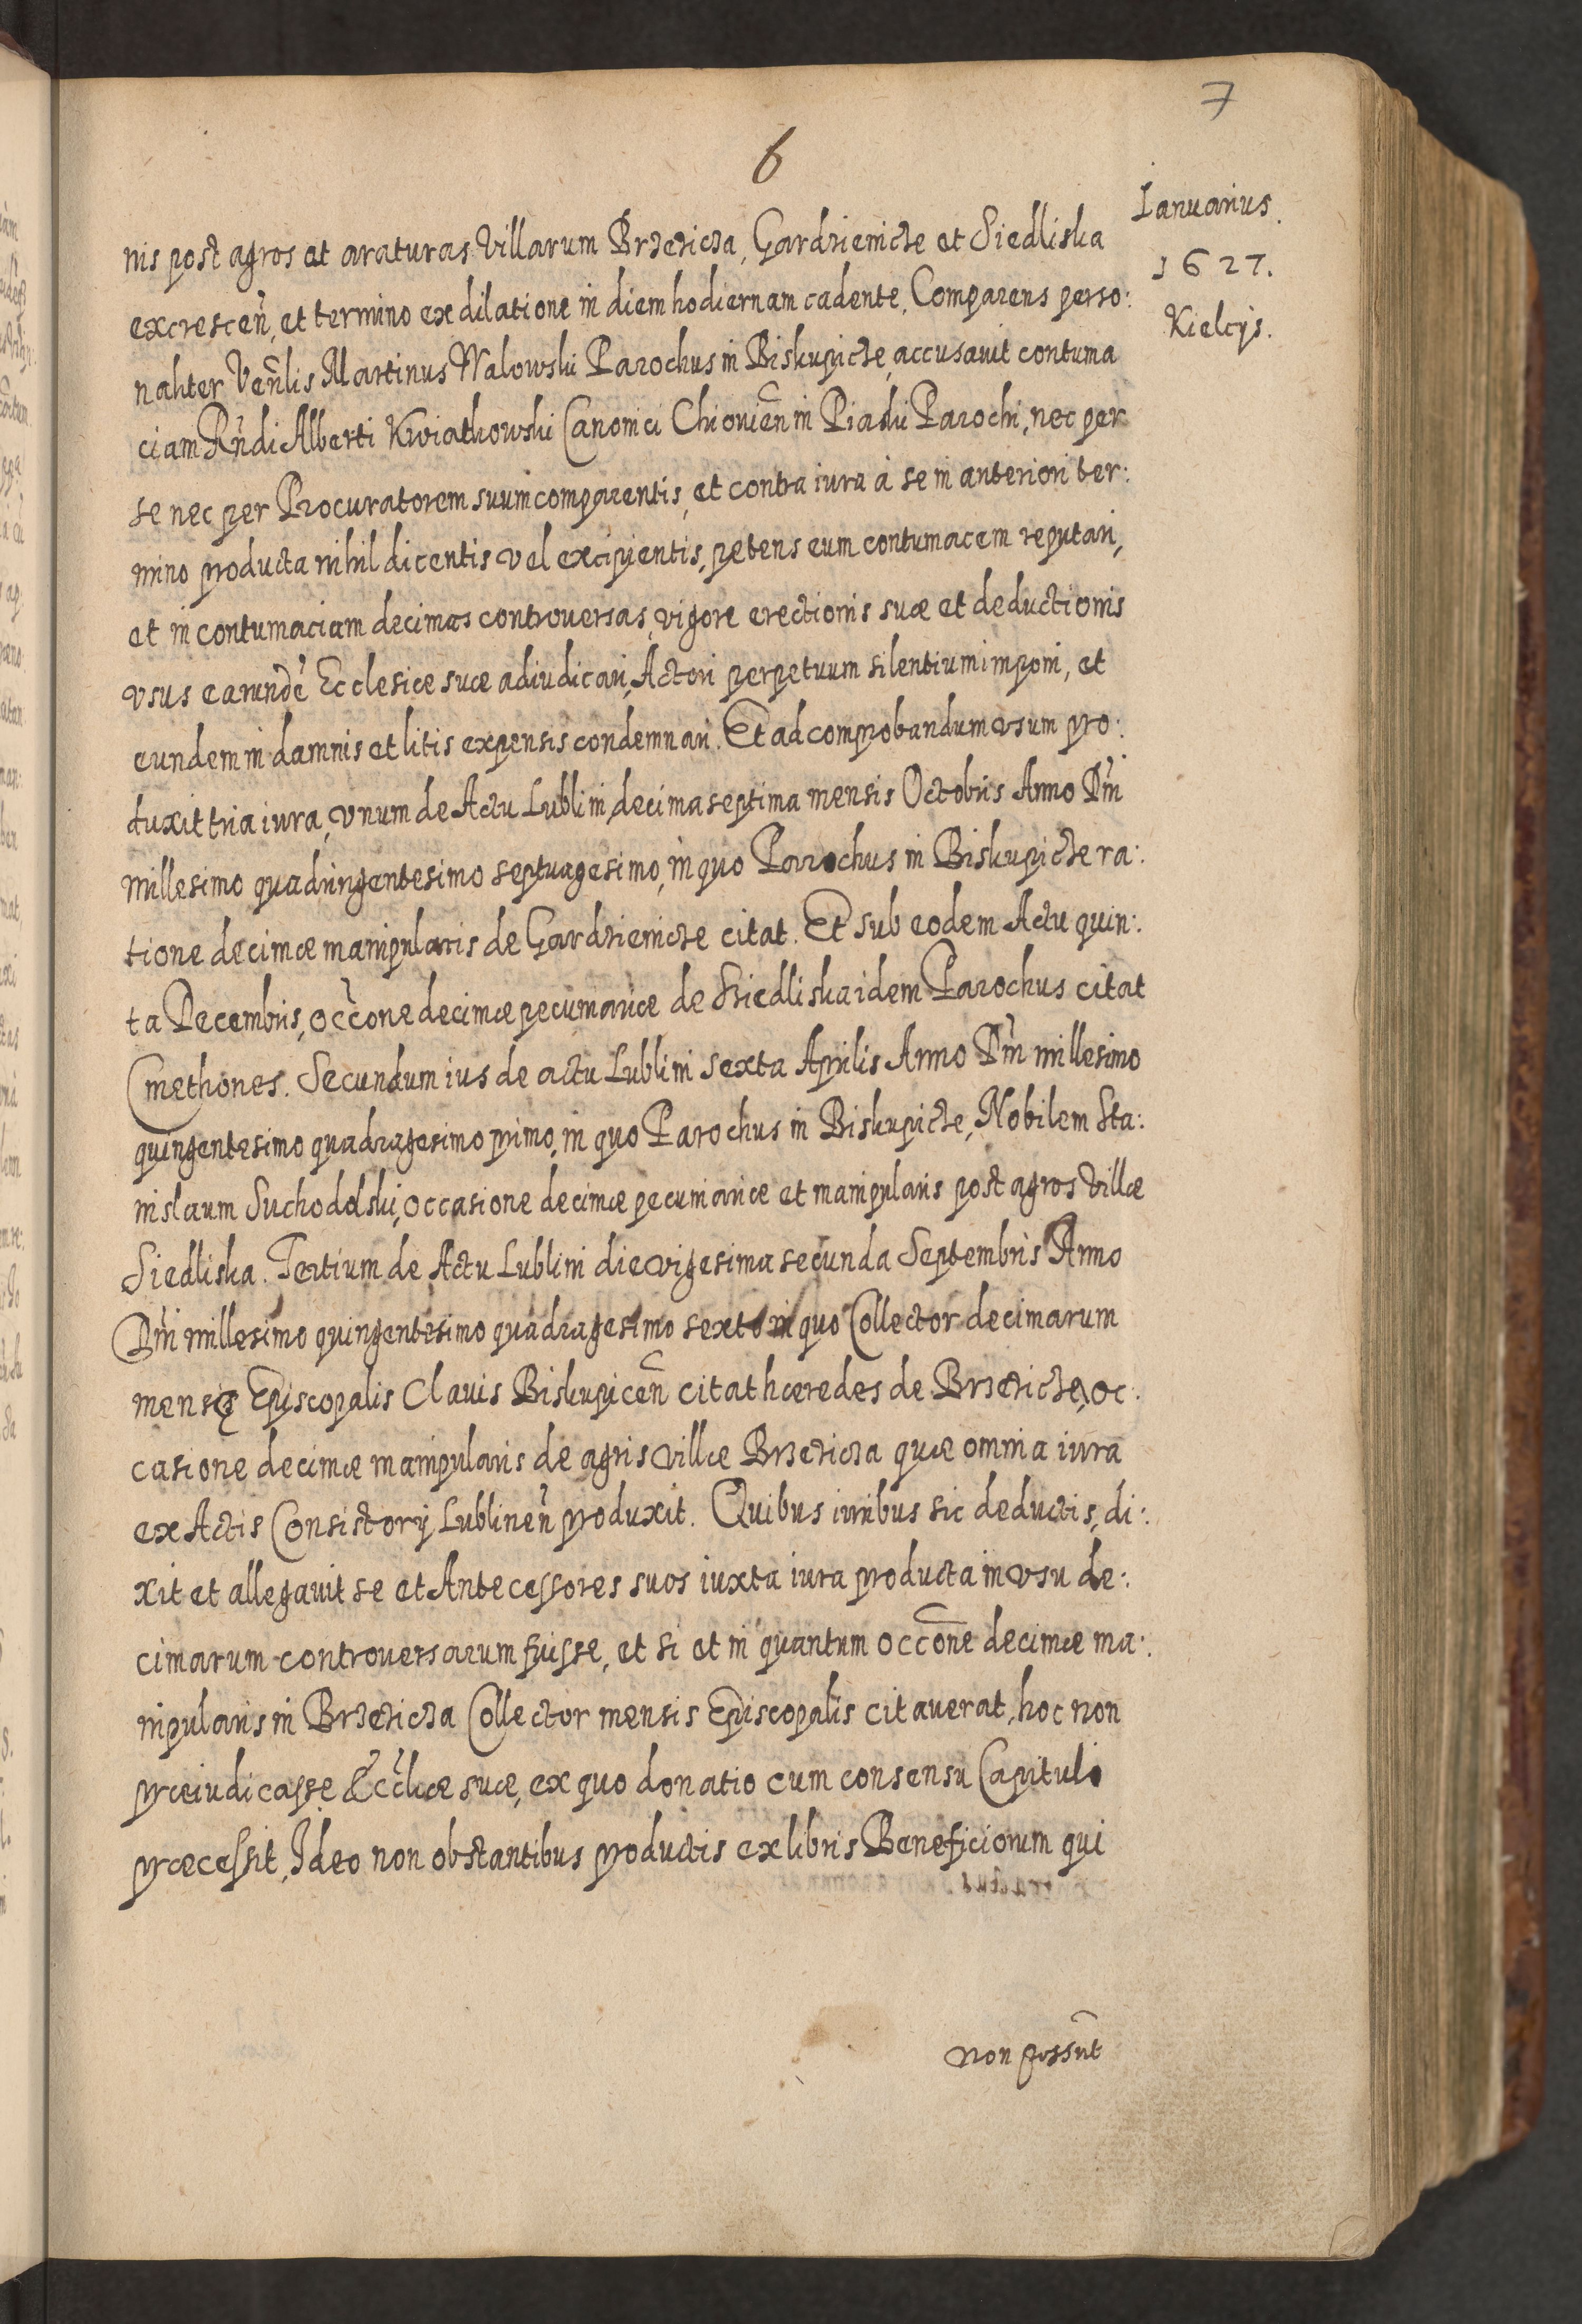 7
6
Ianuarius.
1627.
Kielcijs.
nis post agros et araturas Villarum Brzezicza, Gardzienicze et Siedliska
excrescen̄, et termino ex dilatione in diem hodiernam cadente. Comparens perso:
naliter Ven̄lis Martinus Walowski Parochus in Biskupicze, accusavit contuma
ciam Rn̄di Alberti Kwiatkowski Canonici Chiovien̄ in Piaski Parochi, nec per
se nec per Procuratorem suum comparentis, et contra iura à se in anteriori ter:
mino producta nihil dicentis vel excipientis, petens eum contumacem reputari,
et in contumaciam decimas controversas, vigore erectionis suæ et deductionis
vsus earundē Ecclesiæ suæ adiudicari, Actori perpetuum silentium imponi, et
eundem in damnis et litis expensis condemnari. Et ad comprobandum vsum pro:
duxit tria iura, vnum de Actu Lublini decima septima mensis Octobris Anno Dn̄i
millesimo quadringentesimo septuagesimo, in quo Parochus in Biskupicze ra:
tione decimæ manipularis de Gardzienicze citat. Et sub eodem Actu quin:
ta Decembris, occ̄one decimæ pecuniariæ de Siedliska idem Parochus citat
Cmethones. Secundum ius de actu Lublini sexta Aprilis Anno Dn̄i millesimo
quingentesimo quadragesimo primo, in quo Parochus in Biskupicze, Nobilem Sta:
nislaum Suchodolski, occasione decimæ pecuniariæ et manipularis post agros Villæ
Siedliska. Tertium de Actu Lublini die vigesima secunda Septembris Anno
Dn̄i millesimo quingentesimo quadragesimo sexto in quo Collector decimarum
mensę Episcopalis Clavis Biskupicen̄ citat hæredes de Brzezicze, oc:
casione decimæ manipularis de agris villæ Brzezicza quæ omnia iura
ex Actis Consistorij Lublinen̄ produxit. Quibus iuribus sic deductis, di:
xit et allegavit se et Antecessores suos iuxta iura producta in vsu de:
cimarum controversarum fuisse, et si et in quantum occ̄one decimæ ma:
nipularis in Brzezicza Collector mensis Episcopalis citaverat, hoc non
præiudicasse Ecc̄liæ suæ, ex quo donatio cum consensu Capituli
præcessit, Ideo non obstantibus productis ex libris Beneficiorum qui
non possūt